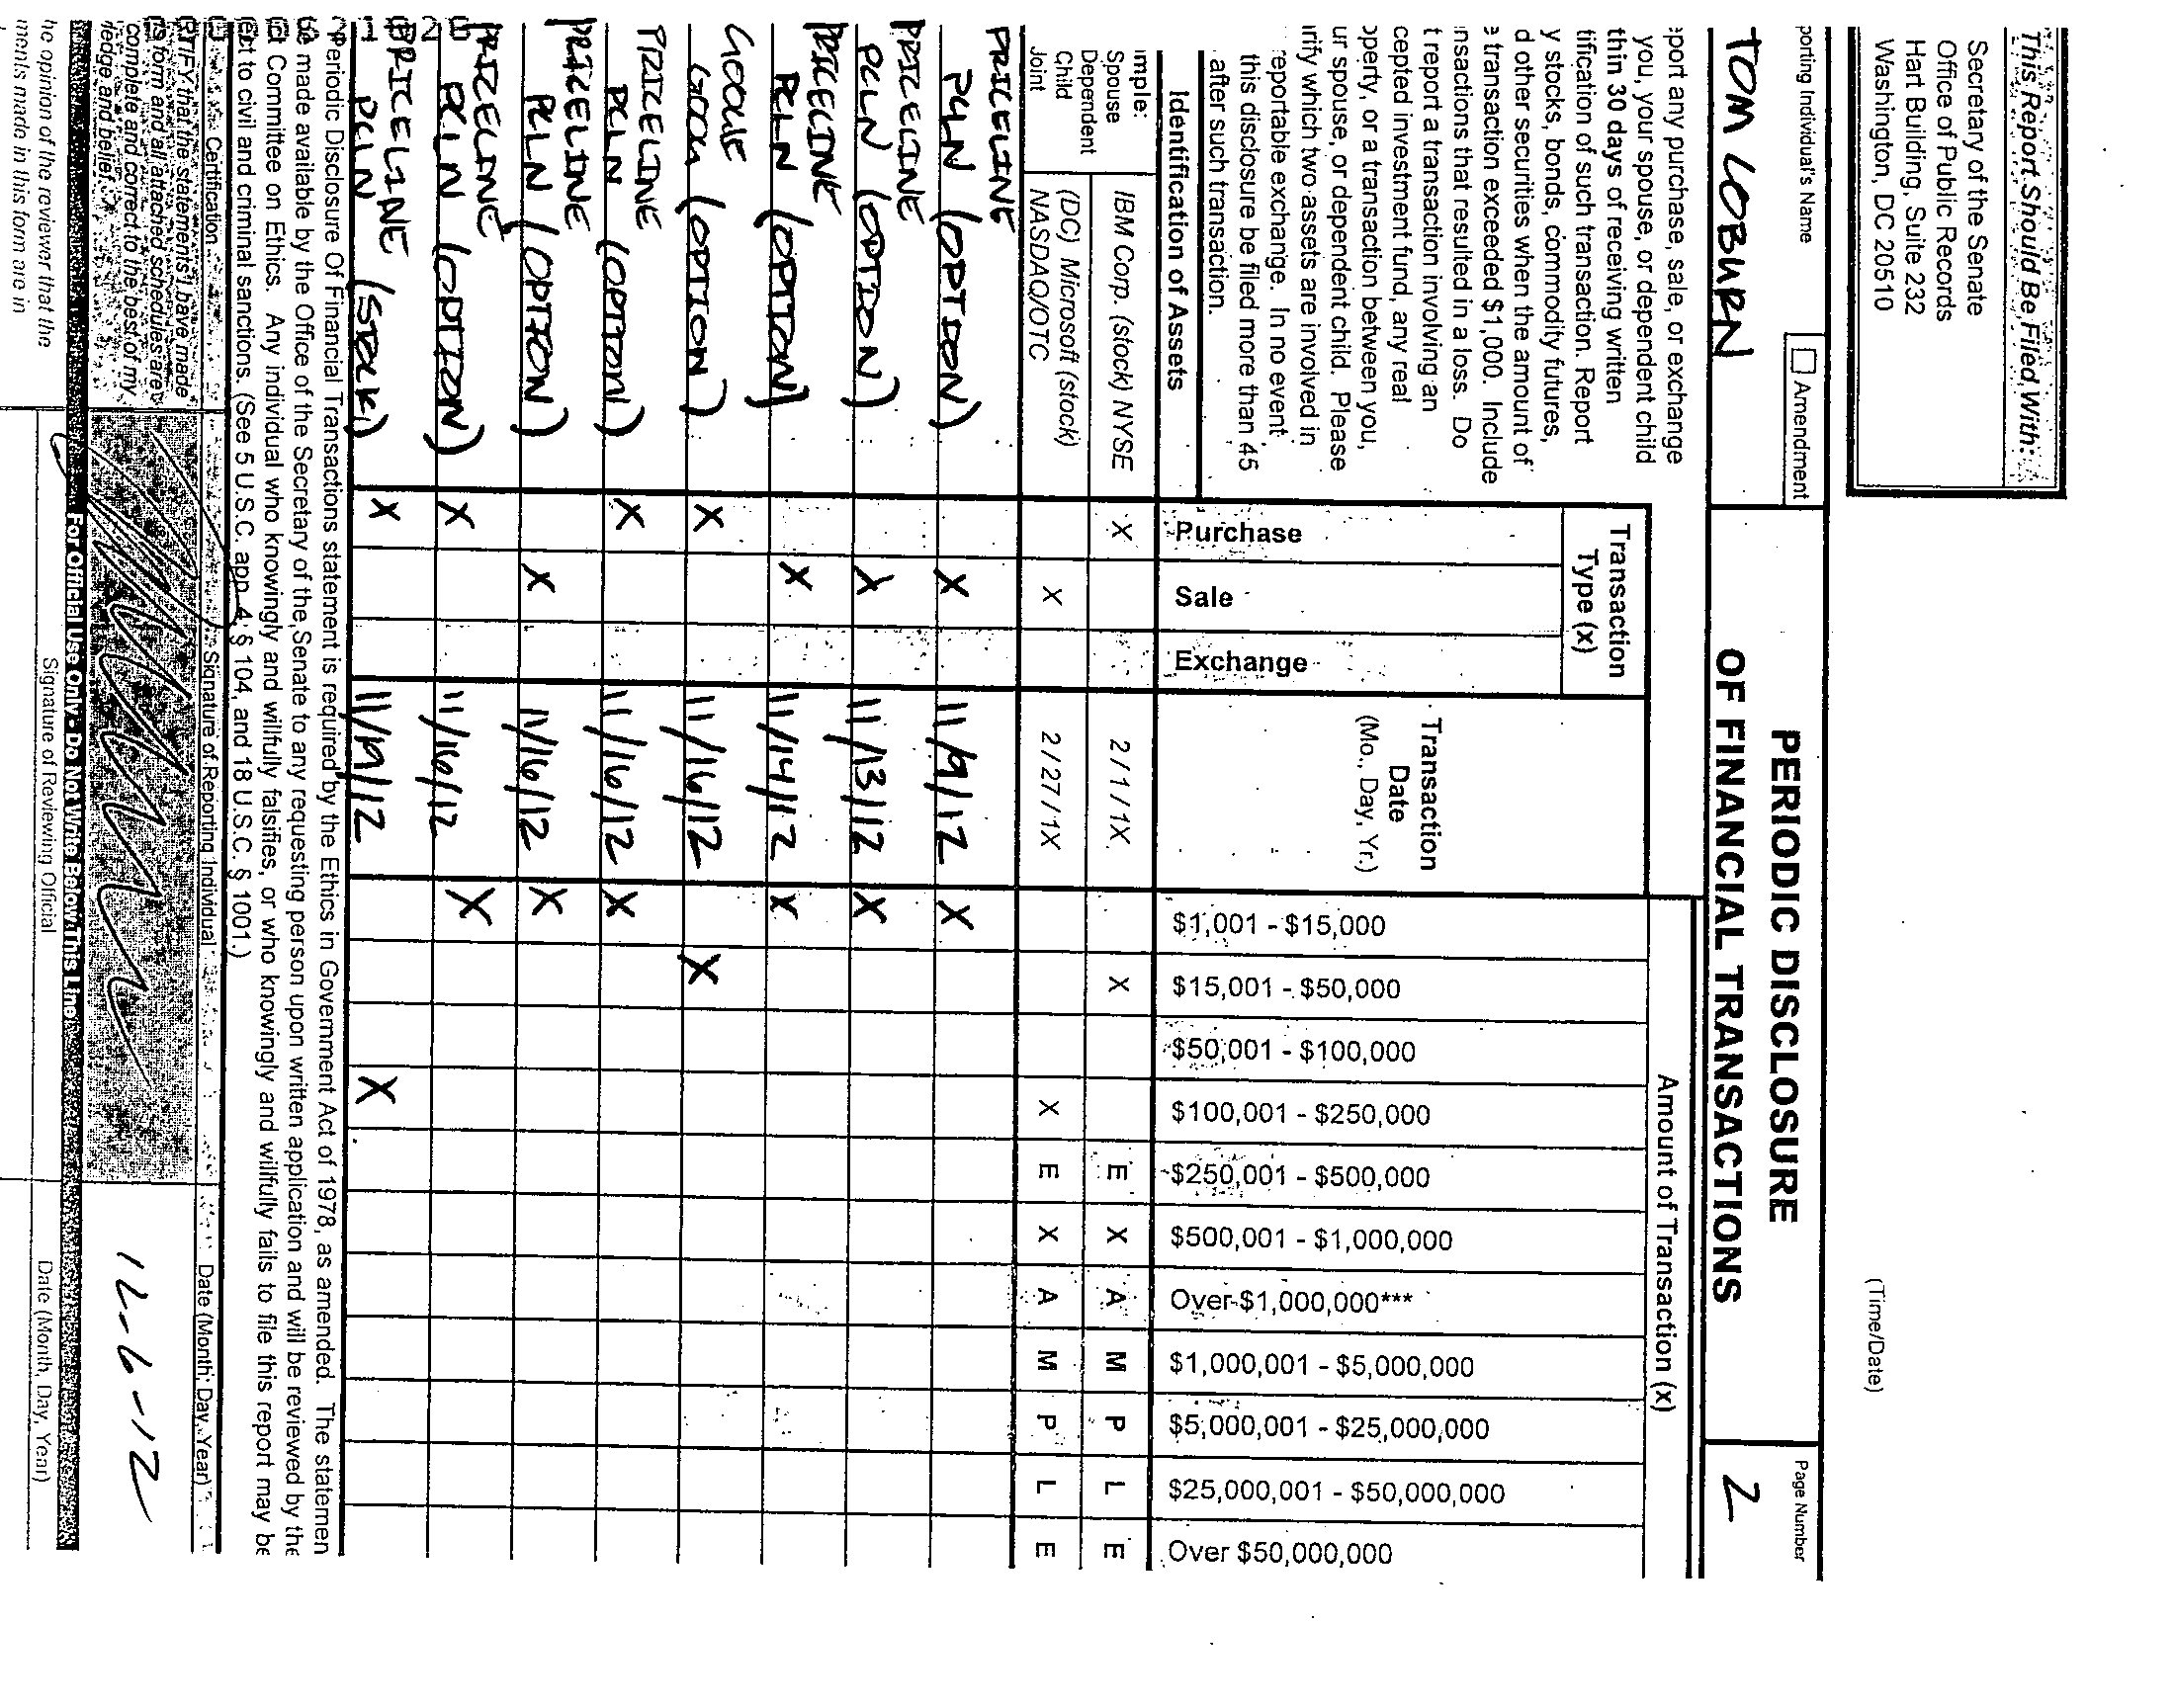 (Time/Date)
This Report Should Be Filed With:
Secretary of the Senate
Office of Public Records
Hart Building, Suite 232
Washington, DC 20510
porting Individual's Name
Amendment
TOM COBURN
PERIODIC DISCLOSURE
OF FINANCIAL TRANSACTIONS
Page Number
2
port any purchase, sale, or exchange
you, your spouse, or dependent child
thin 30 days of receiving written
tification of such transaction. Report
y stocks, bonds, commodity futures,
d other securities when the amount of
e transaction exceeded $1,000. Include
nsactions that resulted in a loss. Do
t report a transaction involving an
cepted investment fund, any real
operty, or a transaction between you,
ur spouse, or dependent child. Please
rify which two assets are involved in
reportable exchange. In no event
this disclosure be filed more than 45
after such transaction.
Identification of Assets
Transaction
Type (x)
Purchase
Sale
Exchange
Transaction
Date
(Mo., Day, Yr.)
Amount of Transaction (x)
$1,001 - $15,000
$15,001 - $50,000
$50,001 - $100,000
$100,001 - $250,000
$250,001 - $500,000
$500,001 - $1,000,000
Over $1,000,000***
$1,000,001 - $5,000,000
$5,000,001 - $25,000,000
$25,000,001 - $50,000,000
Over $50,000,000
mple:
Spouse
Dependent
Child
Joint
IBM Corp. (stock) NYSE X 2/1/1X X E X A M P L E
(DC) Microsoft (stock)
NASDAQ/OTC X 2/27/1X X E X A M P L E
PRICELINE
PCLN (OPTION) X 11/9/12 X
PRICELINE
PCLN (OPTION) X 11/13/12 X
PRICELINE
PCLN (OPTION) X 11/14/12 X
GOOGLE
GOOG (OPTION) X 11/16/12 X
PRICELINE
PCLN (OPTION) X 11/16/12 X
PRICELINE
PCLN (OPTION) X 11/16/12 X
PRICELINE
PCLN (OPTION) X 11/16/12 X
PRICELINE
PCLN (STOCK) X 11/19/12 X
Periodic Disclosure Of Financial Transactions statement is required by the Ethics in Government Act of 1978, as amended. The statemen
be made available by the Office of the Secretary of the Senate to any requesting person upon written application and will be reviewed by the
ct Committee on Ethics. Any individual who knowingly and willfully falsifies, or who knowingly and willfully fails to file this report may be
ject to civil and criminal sanctions. (See 5 U.S.C. app. 4, § 104, and 18 U.S.C. § 1001.)
Certification
Signature of Reporting Individual
Date (Month, Day, Year)
TIFY that the statements I have made
s form and all attached schedules are
complete and correct to the best of my
ledge and belief.
12-6-12
For Official Use Only - Do Not Write Below This Line
he opinion of the reviewer that the
ments made in this form are in
Signature of Reviewing Official
Date (Month, Day, Year)